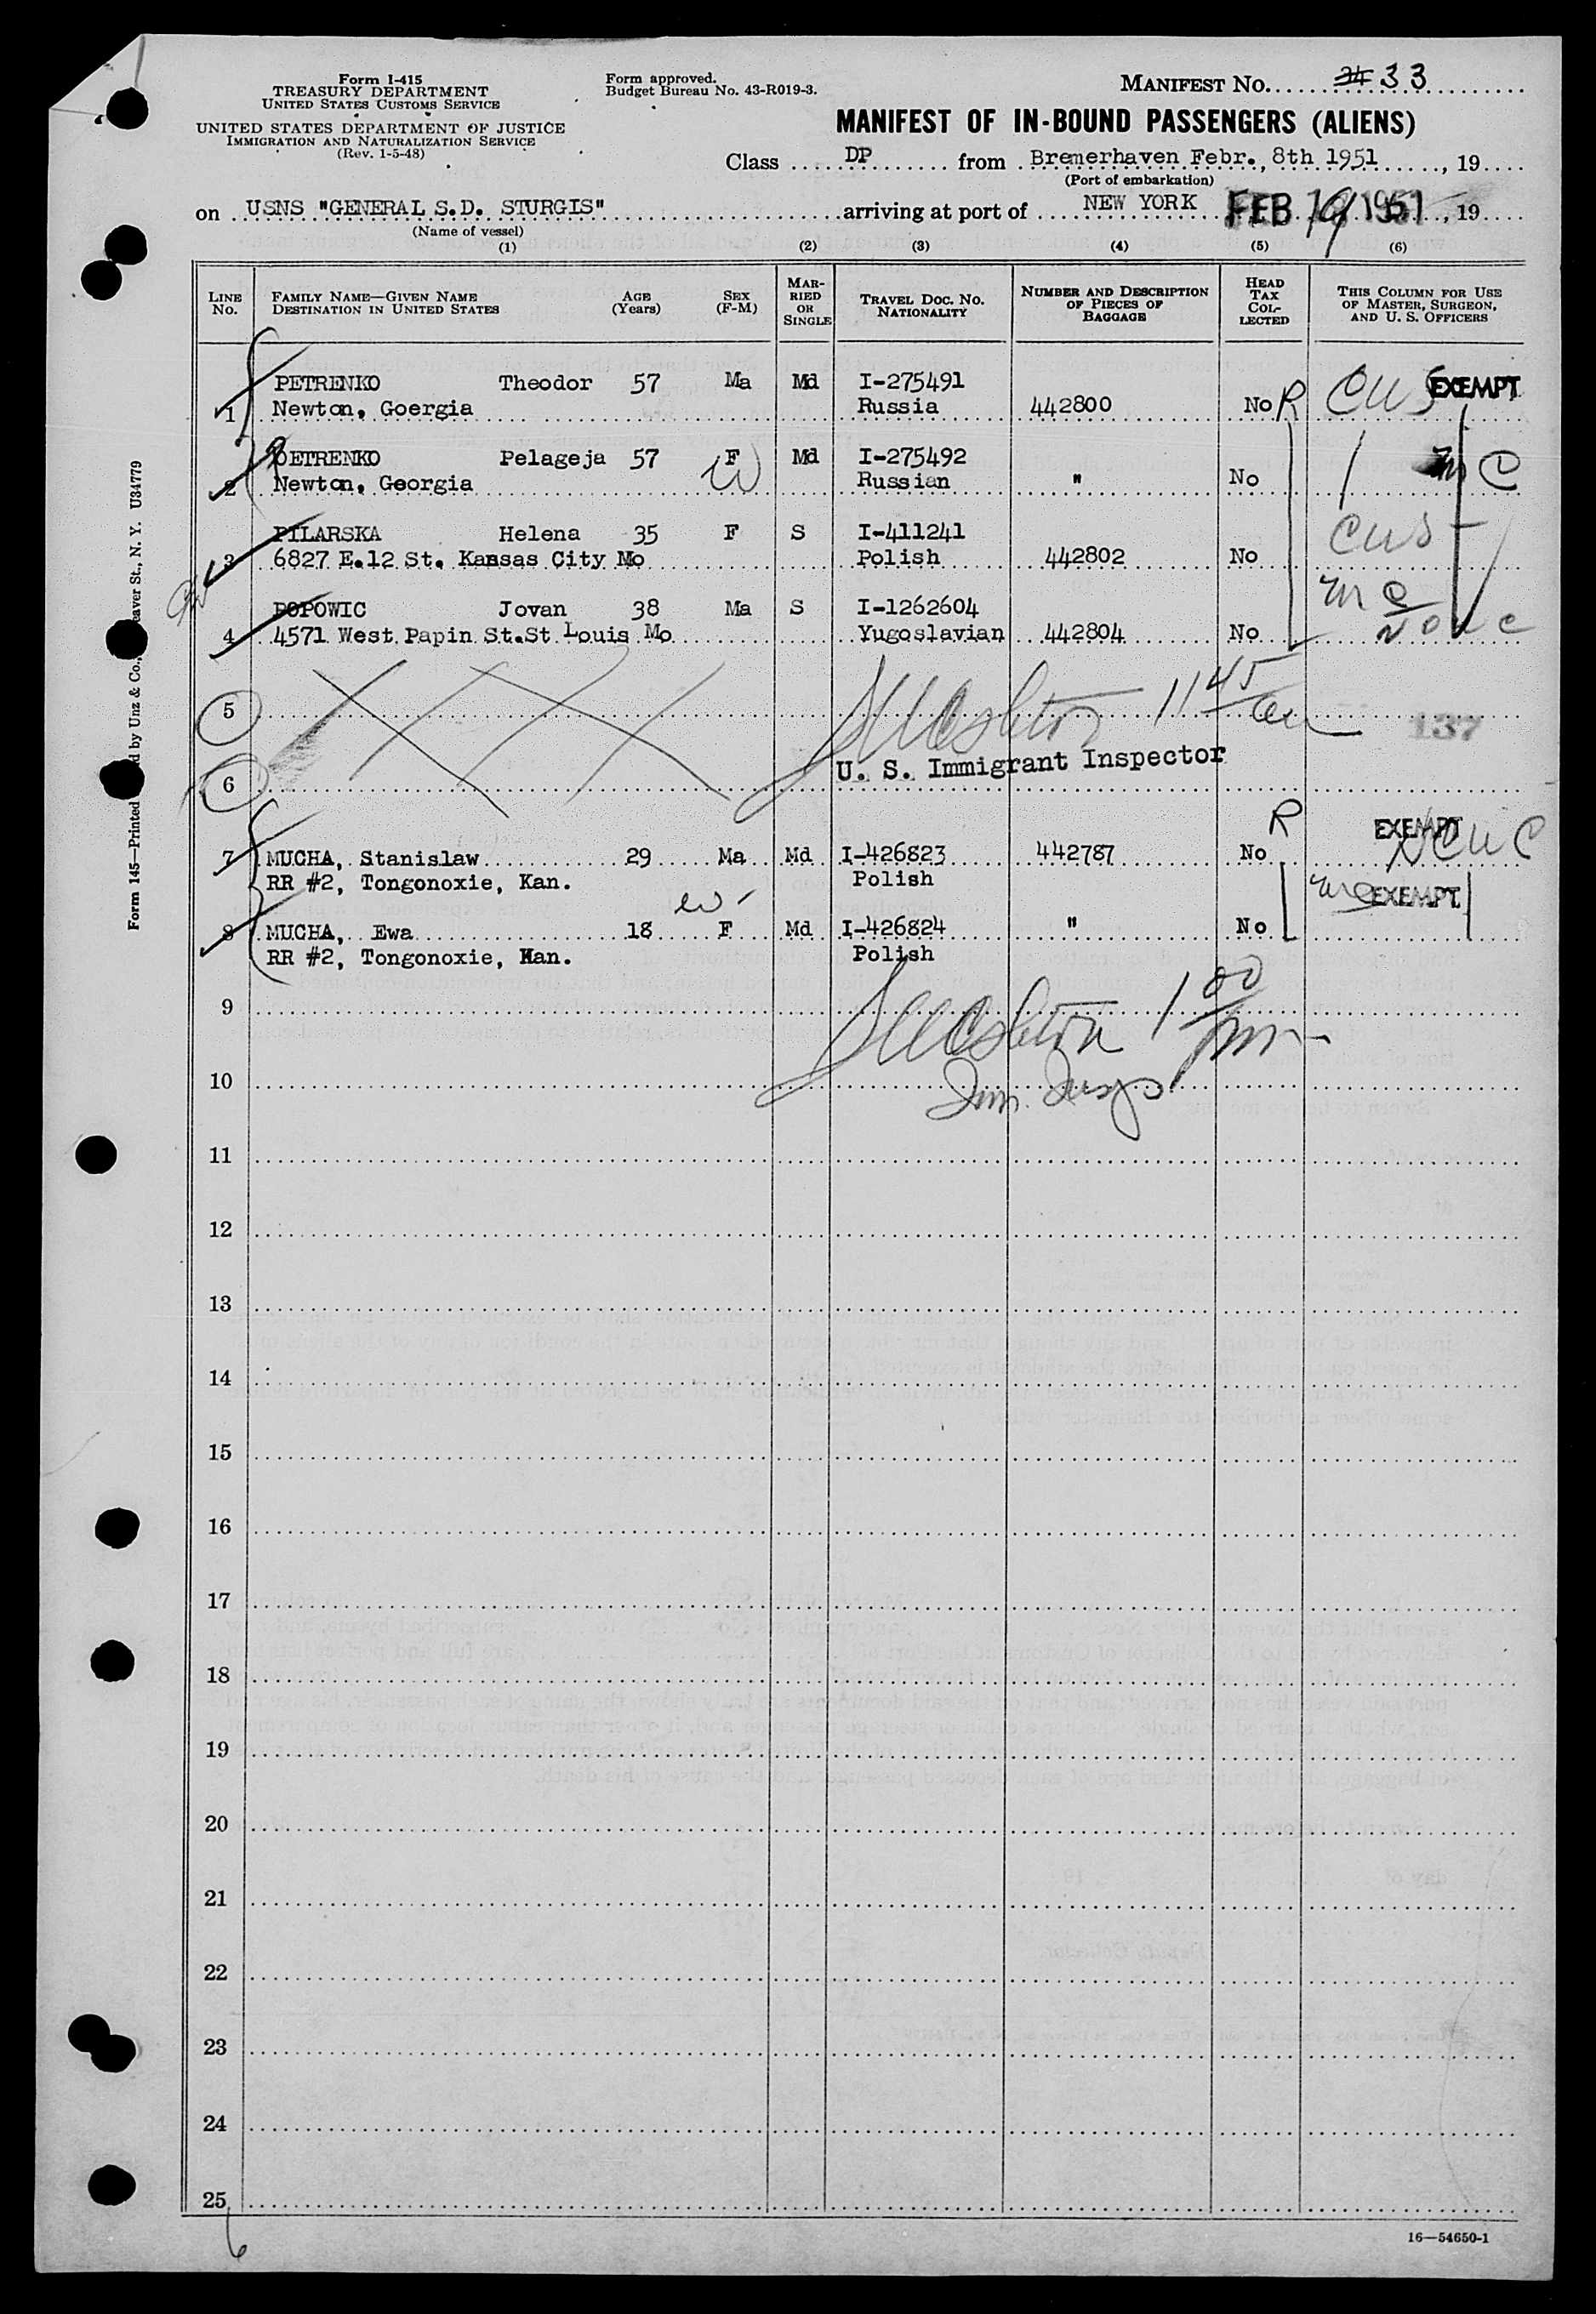 Form I-415
TREASURY DEPARTMENT
UNITED STATES CUSTOMS SERVICE
UNITED STATES DEPARTMENT OF JUSTICE
IMMIGRATION AND NATURALIZATION SERVICE
(Rev. 1-5-48)
Form approved.
Budget Bureau No. 43-R019-3.
MANIFEST NO. 34 33
MANIFEST OF IN-BOUND PASSENGERS (ALIENS)
Class DP from Bremerhaven Febr., 8th 1951, 19
(Port of embarkation)
on USNS "GENERAL S.D. STURGIS" arriving at port of NEW YORK FEB 19 1951, 19
(Name of vessel)
(1) (2) (3) (4) (5) (6)
LINE NO. FAMILY NAME—GIVEN NAME DESTINATION IN UNITED STATES AGE (Years) SEX (F-M) MARRIED OR SINGLE TRAVEL DOC. NO. NATIONALITY NUMBER AND DESCRIPTION OF PIECES OF BAGGAGE HEAD TAX COLLECTED THIS COLUMN FOR USE OF MASTER, SURGEON, AND U. S. OFFICERS
PETRENKO Theodor 57 Ma Md I-275491 CWS EXEMPT
1 Newton, Goergia Russia 442800 No R
PETRENKO Pelageja 57 F Md I-275492
2 Newton, Georgia W Russian " No
PILARSKA Helena 35 F S I-411241 CWS
3 6827 E.12 St. Kansas City Mo Polish 442802 No
POPOWIC Jovan 38 Ma S I-1262604
4 4571 West Papin St.St Louis Mo Yugoslavian 442804 No None
5 11 45 137
U. S. Immigrant Inspector
6
R EXEMPT
7 MUCHA, Stanislaw 29 Ma Md I-426823 442787 No
RR #2, Tongonoxie, Kan. Polish
EXEMPT
8 MUCHA, Ewa 18 F Md I-426824 " No
RR #2, Tongonoxie, Kan. Polish
9 1 00 pm
10 Imm. Insp
11
12
13
14
15
16
17
18
19
20
21
22
23
24
25
6
16—54650-1
Form 145—Printed
d by Unz & Co.,
eaver St., N. Y. U34779